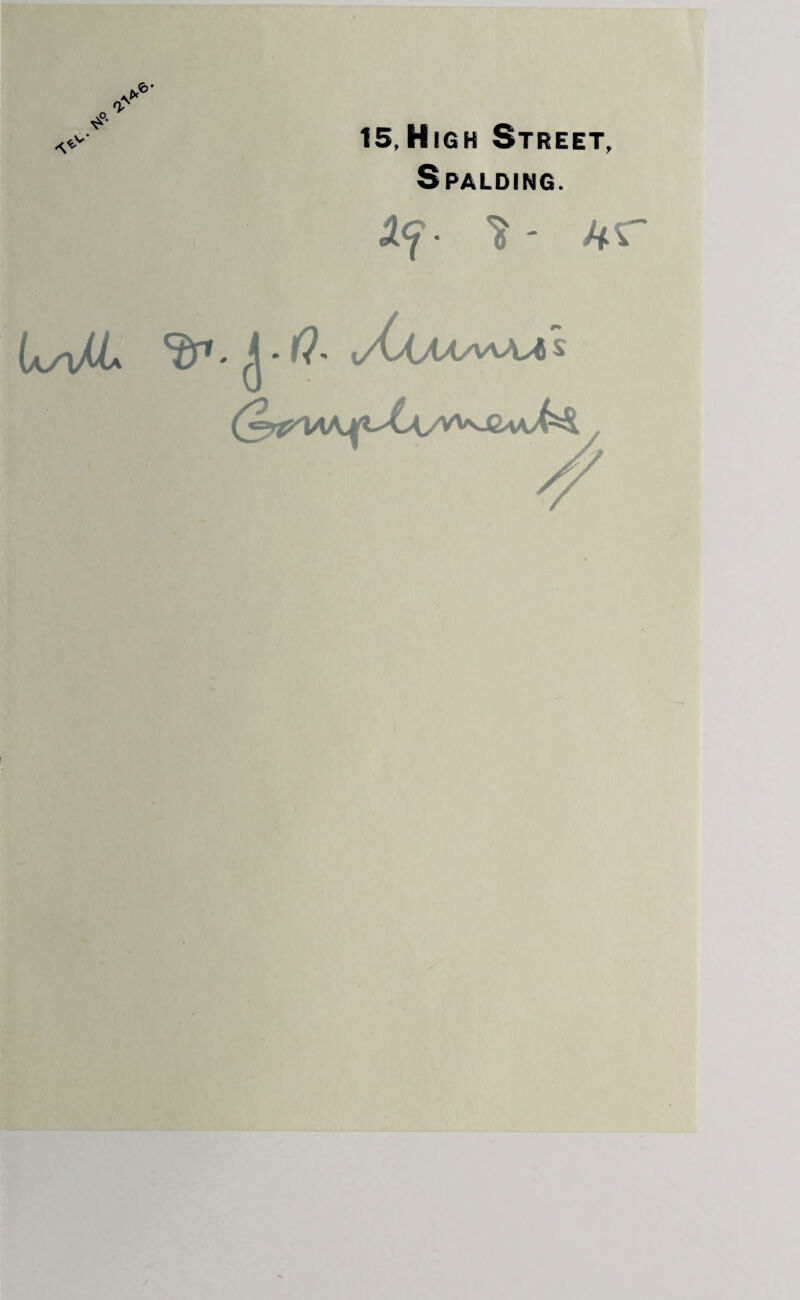 Tel. No. 2146.
15, High Street,
Spalding.
29. 8 - 45
With Dr. J. R. 's
Compliments